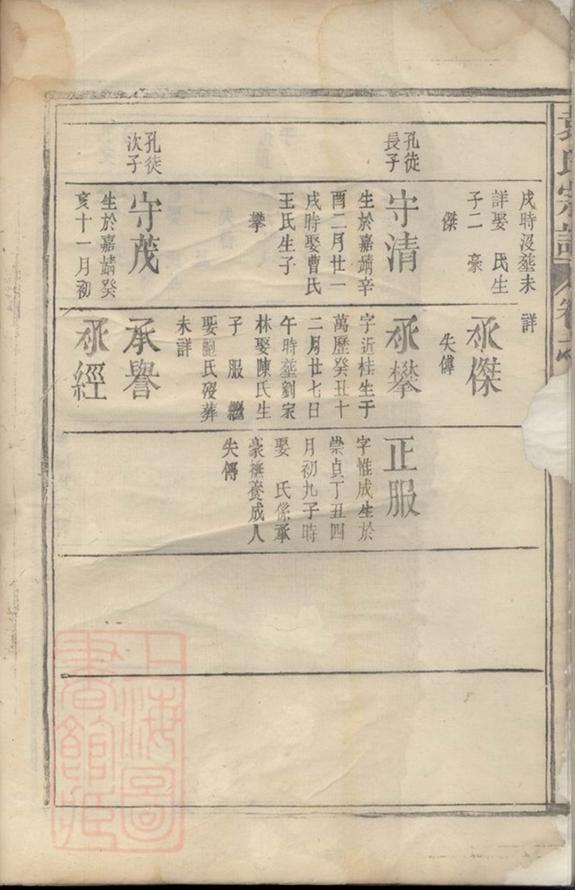 袁氏宗譜
戌時沒塟未詳
詳娶　氏生
子二　豪
傑
孔徒
長子
守清
生於嘉靖辛
酉二月廿一
戌時娶曹氏
王氏生子
攀
孔徒
次子
守茂
生於嘉靖癸
亥十一月初
承傑
失傳
承攀
字近桂生于
萬歷癸丑十
二月廿七日
午時塟劉家
林娶陳氏生
子服繼
娶鮑氏歿葬
未詳
承譽
承經
正服
字惟成生於
崇貞丁丑四
月初九子時
娶　氏係承
豪撫養成人
失傳
上海圖
書館